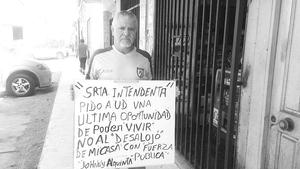 "SRTA INTENDENTA"
PIDO A UD UNA
ULTIMA OPORTUNIDAD
DE PODER "VIVIR"
NO AL "DESALOJO"
DE MI CASA CON FUERZA
PUBLICA"